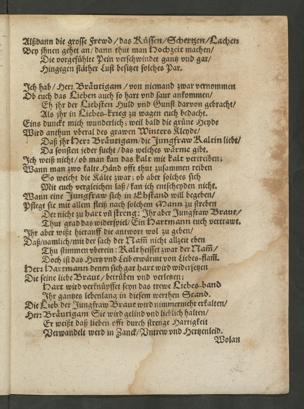 Alßdann die grosse Frewd / das Küssen / Schertzen / Lachen
Bey ihnen gehet an / dann thut man Hochzeit machen /
Die vorgefühlte Pein verschwindet gantz und gar /
Hingegen stäther Lust besitzt solches Par.
Ich hab / Herr Bräutigam / von niemand zwar vernommen
Ob euch das Lieben auch so hart und saur ankommen /
Eh ihr der Liebsten Huld und Gunst darvon gebracht /
Als ihr in Liebes-krieg zu wagen euch bedacht.
Eins dunckt mich wunderlich: weil bald die grüne Heyde
Wird anthun uberal des grawen Winters Kleyde /
Daß ihr Herr Bräutigam / die Jungfraw Kaltin liebt /
Da sonsten jeder sucht / das welches wärme gibt.
Ich weiß nicht / ob man kan das kalt mit kalt vertreiben;
Wann man zwo kalte Händ offt thut zusammen reiben
So weicht die Kälte zwar: ob aber solches sich
Mit euch vergleichen laß / kan ich entscheyden nicht.
Wann eine Jungfraw sich in Ehstand will begeben /
Pflegt sie mit allem fleiß nach solchem Mann zu streben
Der nicht zu hart uñ streng: Ihr aber Jungfraw Braut /
Thut grad das widerspiel / Ein Hartmann euch vertrawt.
Ihr aber wißt hierauff die antwort wol zu geben /
Daß / namlich / mit der sach der Nam̃ nicht allzeit eben
Thu stimmen uberein: Kalt heisset zwar der Nam̃ /
Doch ist das Hertz und Leib erwärmt von Liebes-flam̃.
Herr Hartmann denen sich gar hart wird widersetzen
Die seine liebe Braut / betrüben und verletzen:
Hart wird verknüpffet seyn das trewe Liebes-band
Ihr gantzes lebenlang in diesem werthen Stand.
Die Lieb der Jungfraw Braut wird nimmer nicht erkalten /
Herr Bräutigam Sie wird gelind und lieblich halten /
Er weißt daß lieben offt durch strenge Hartigkeit
Verwandelt werd in Zanck / Untrew und Hertzenleid.
Wolan